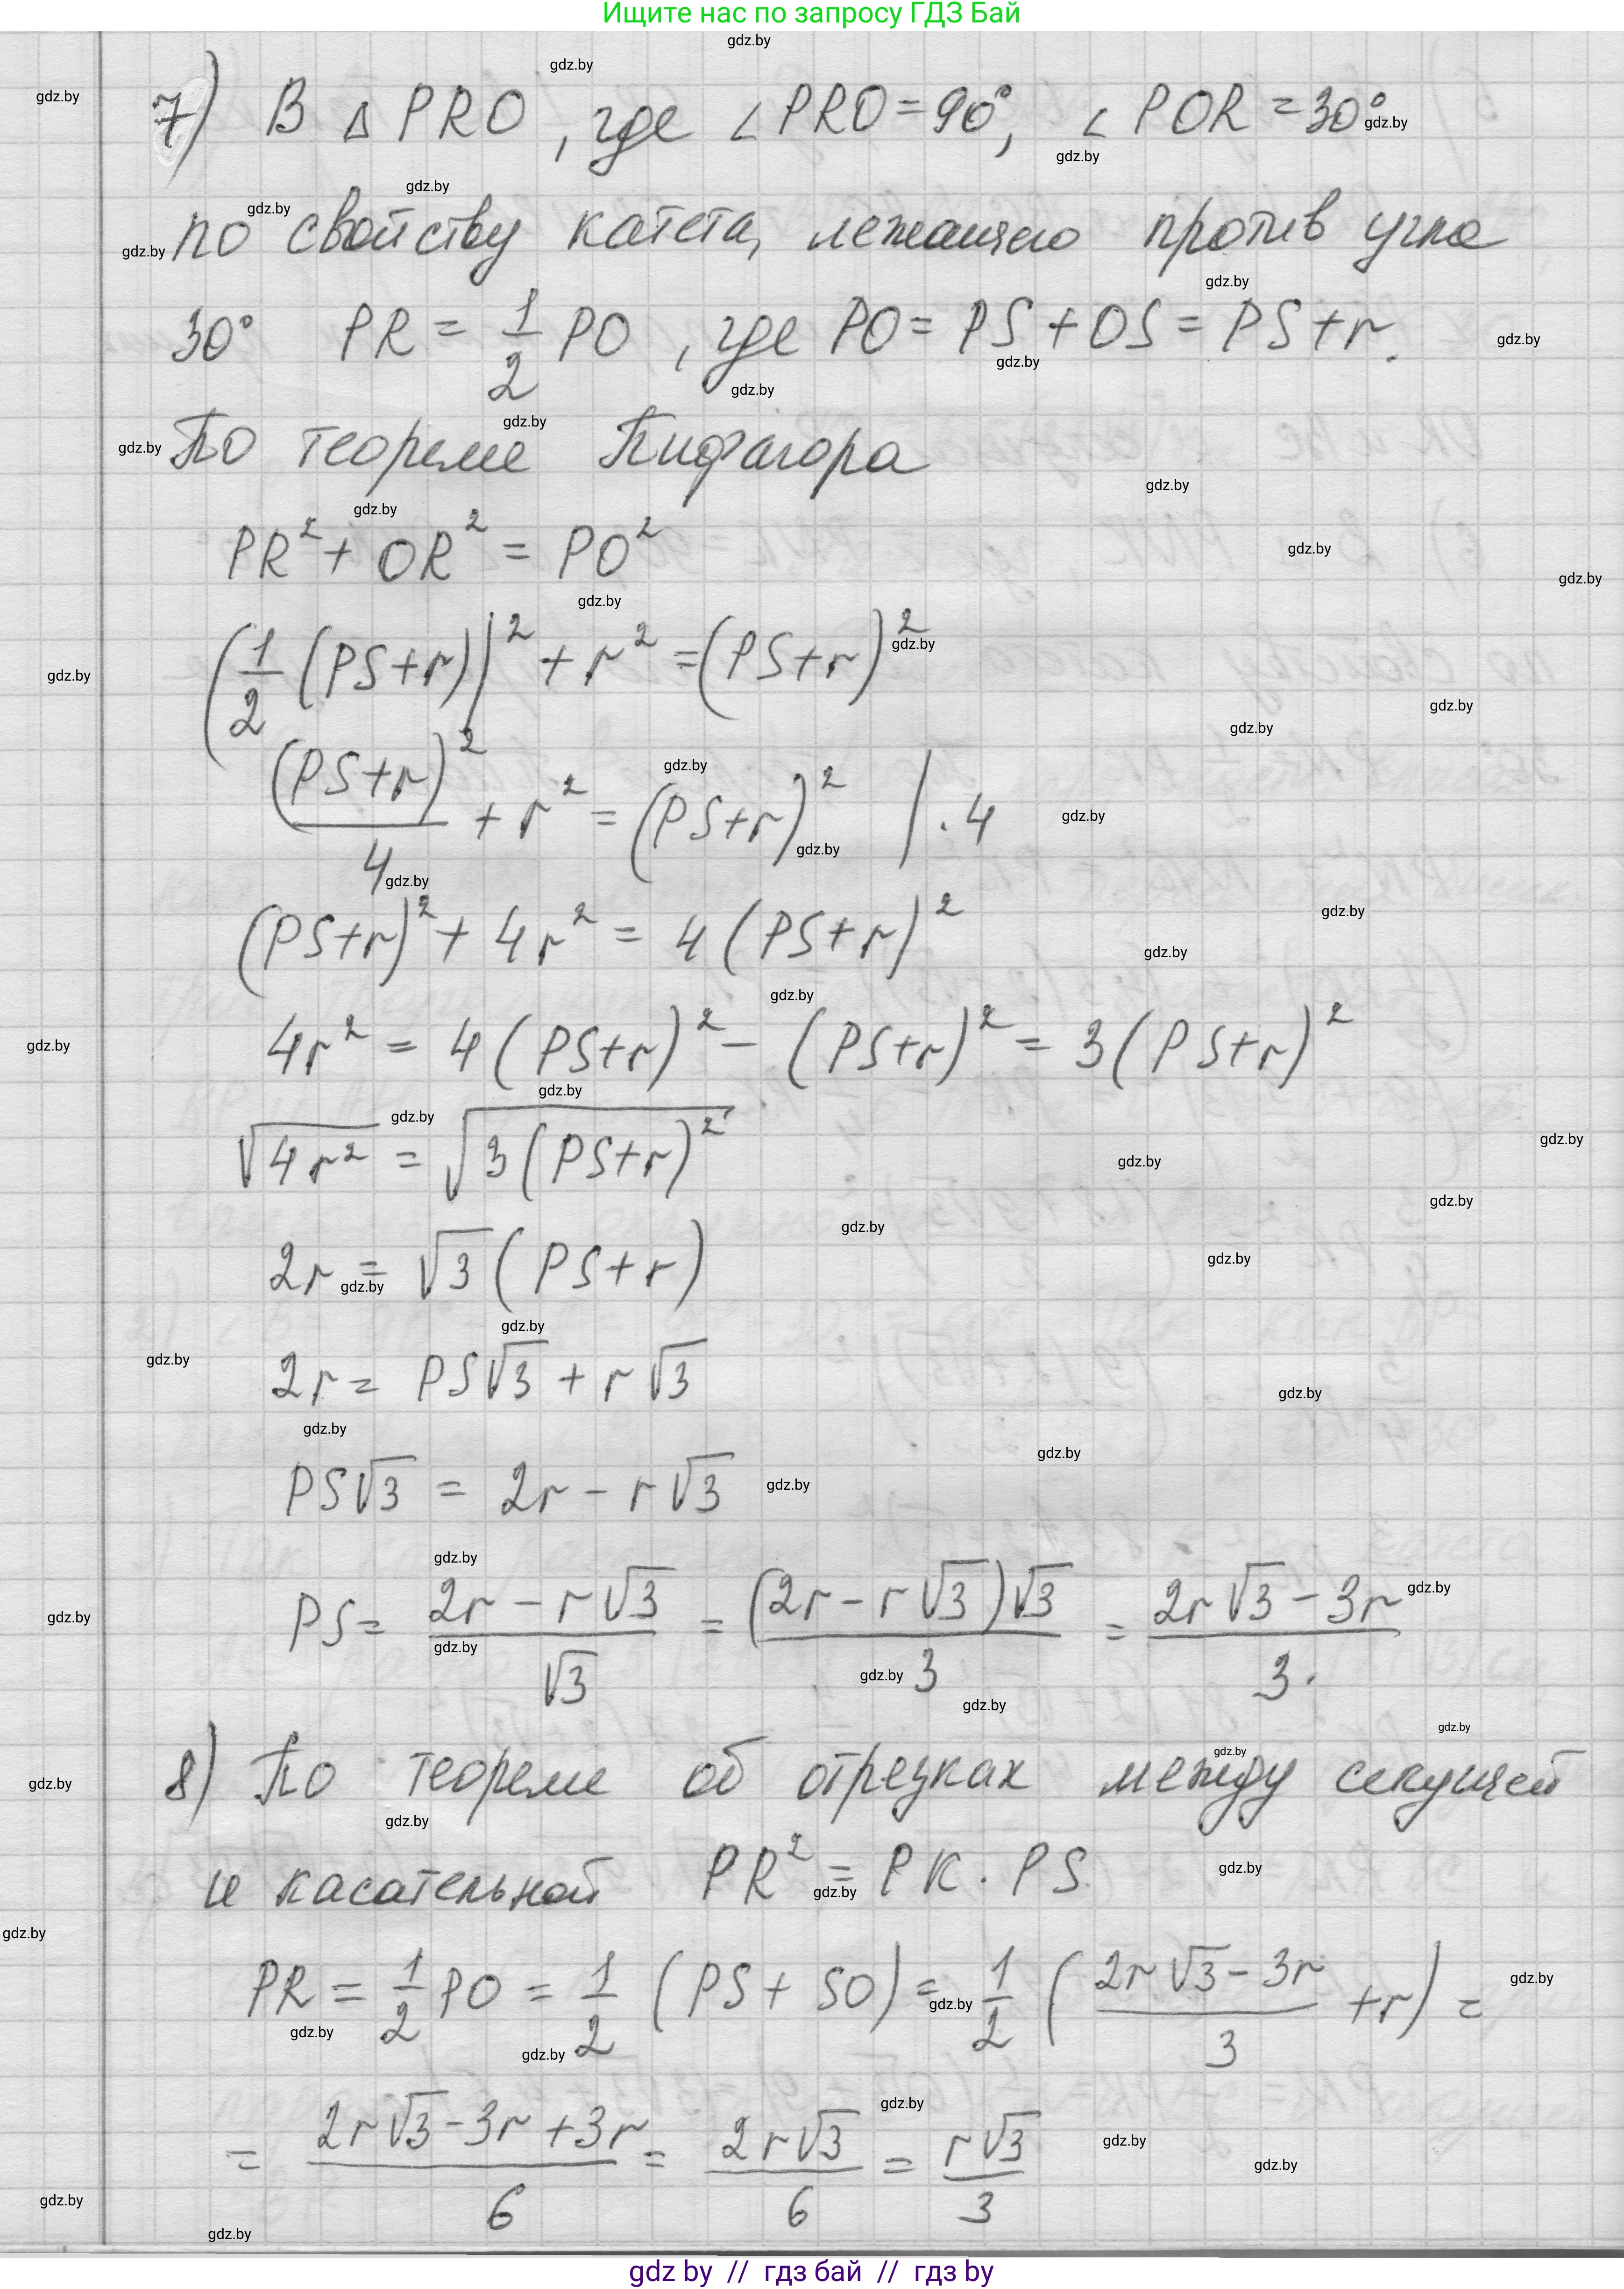 Ищите нас по запросу ГДЗ Бай
7) В △ PRO, где ∠PRO = 90°, ∠ POR = 30°
по свойству катета, лежащего против угла
30° PR = 1/2 PO, где PO = PS + OS = PS + r.
По теореме Пифагора
PR² + OR² = PO²
(1/2 (PS+r))² + r² = (PS+r)²
(PS+r)²/4 + r² = (PS+r)² | · 4
(PS+r)² + 4r² = 4(PS+r)²
4r² = 4(PS+r)² − (PS+r)² = 3(PS+r)²
√(4r²) = √(3(PS+r)²)
2r = √3 (PS+r)
2r = PS√3 + r√3
PS√3 = 2r − r√3
PS = (2r − r√3)/√3 = ((2r − r√3)√3)/3 = (2r√3 − 3r)/3.
8) По теореме об отрезках между секущей
и касательной PR² = PK · PS.
PR = 1/2 PO = 1/2 (PS + SO) = 1/2 ((2r√3 − 3r)/3 + r) =
= (2r√3 − 3r + 3r)/6 = 2r√3/6 = r√3/3
gdz by // гдз бай // гдз by